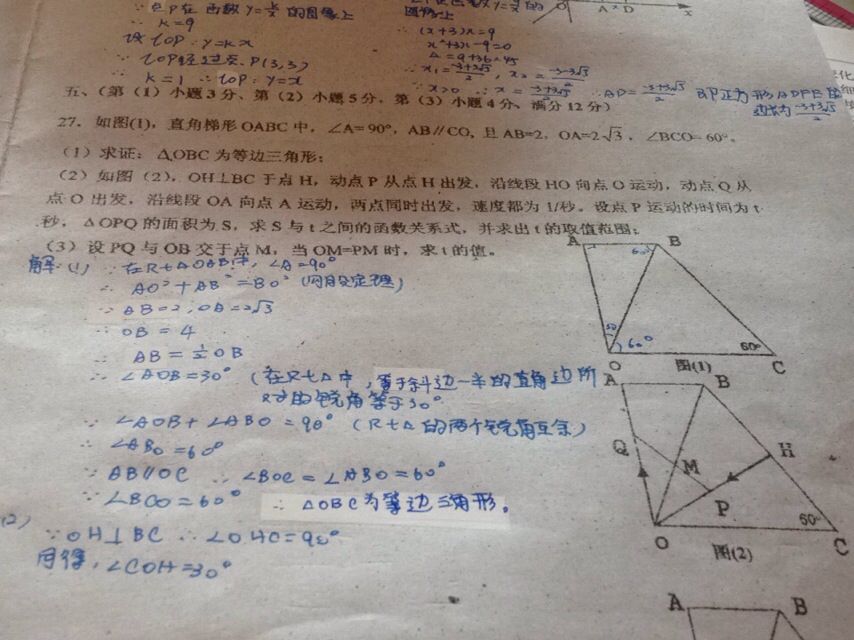 ∵ 点P在函数y=k/x的图像上
∴ k=9
设lOP:y=kx
∵ lOP经过点P(3,3)
∴ k=1 ∴ lOP:y=x
图像上
∴ (x+3)x=9
x²+3x-9=0
Δ=9+36=45
∴ x₁=(-3+3√5)/2, x₂=(-3-3√5)/2
∵ x>0 ∴ x=(-3+3√5)/2 ∴ AD=(-3+3√5)/2 即正方形ADFE的
边长为(-3+3√5)/2
五、(第(1)小题3分、第(2)小题5分,第(3)小题4分、满分12分)
27. 如图(1),直角梯形OABC中,∠A=90°,AB∥CO,且AB=2,OA=2√3,∠BCO=60°。
(1)求证:△OBC为等边三角形;
(2)如图(2),OH⊥BC于点H,动点P从点H出发,沿线段HO向点O运动,动点Q从
点O出发,沿线段OA向点A运动,两点同时出发,速度都为1/秒。设点P运动的时间为t
秒,△OPQ的面积为S,求S与t之间的函数关系式,并求出t的取值范围;
(3)设PQ与OB交于点M,当OM=PM时,求t的值。
解:(1) ∵ 在Rt△OAB中,∠A=90°
∴ AO²+AB²=BO²(勾股定理)
∵ AB=2,OA=2√3
∴ OB=4
∴ AB=½OB
∴ ∠AOB=30°(在Rt△中,等于斜边一半的直角边所
对的锐角等于30°
∵ ∠AOB+∠ABO=90°(Rt△的两个锐角互余)
∴ ∠ABO=60°
∵ AB∥OC ∴ ∠BOC=∠ABO=60°
∵ ∠BCO=60° ∴ △OBC为等边三角形。
(2) ∵ OH⊥BC ∴ ∠OHC=90°
同得,∠COH=30°
O A D x
A B
60°
30
60°
60°
O 图(1) C
A B
Q M H
P 60°
O 图(2) C
A B